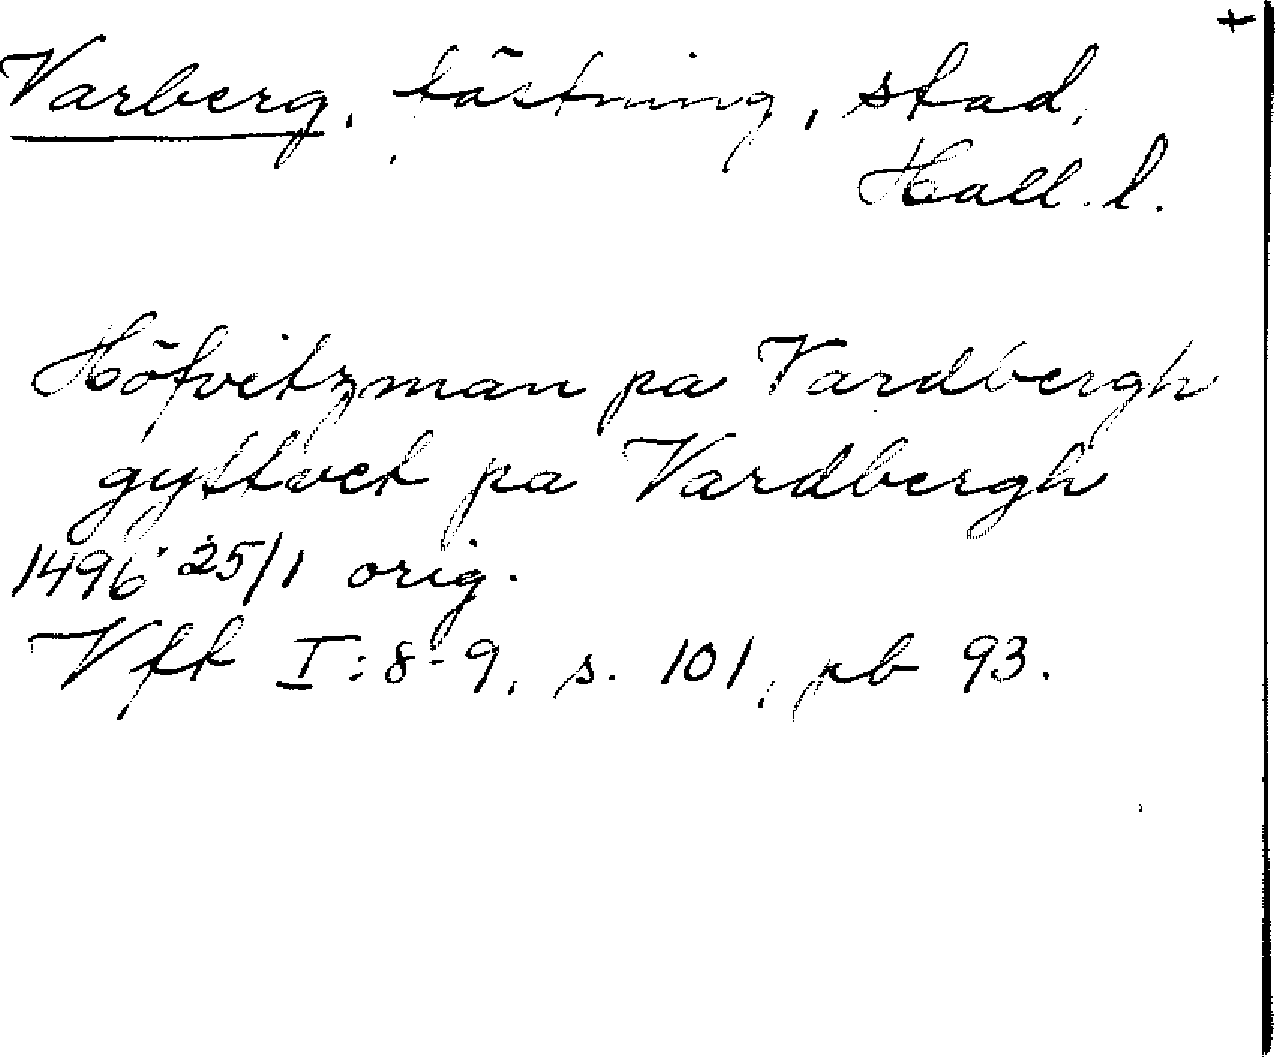 +
Varberg, fästning, stad,
Hall. l.
Höfvitzman pa Vardbergh
pa Vardbergh
1496 25/1 orig.
Vft I:8-9, s. 101, pb 93.